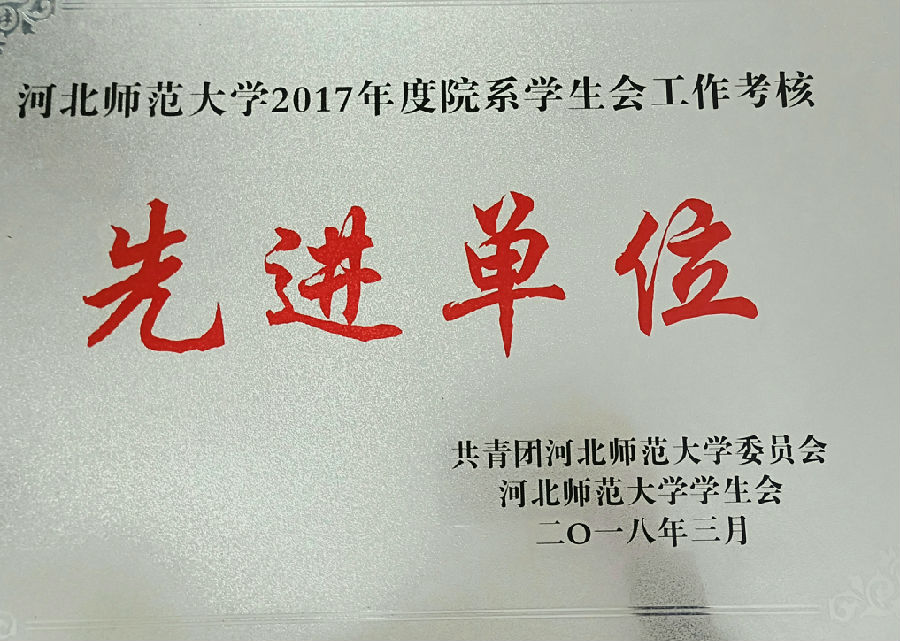 河北师范大学2017年度院系学生会工作考核
先进单位
共青团河北师范大学委员会
河北师范大学学生会
二〇一八年三月